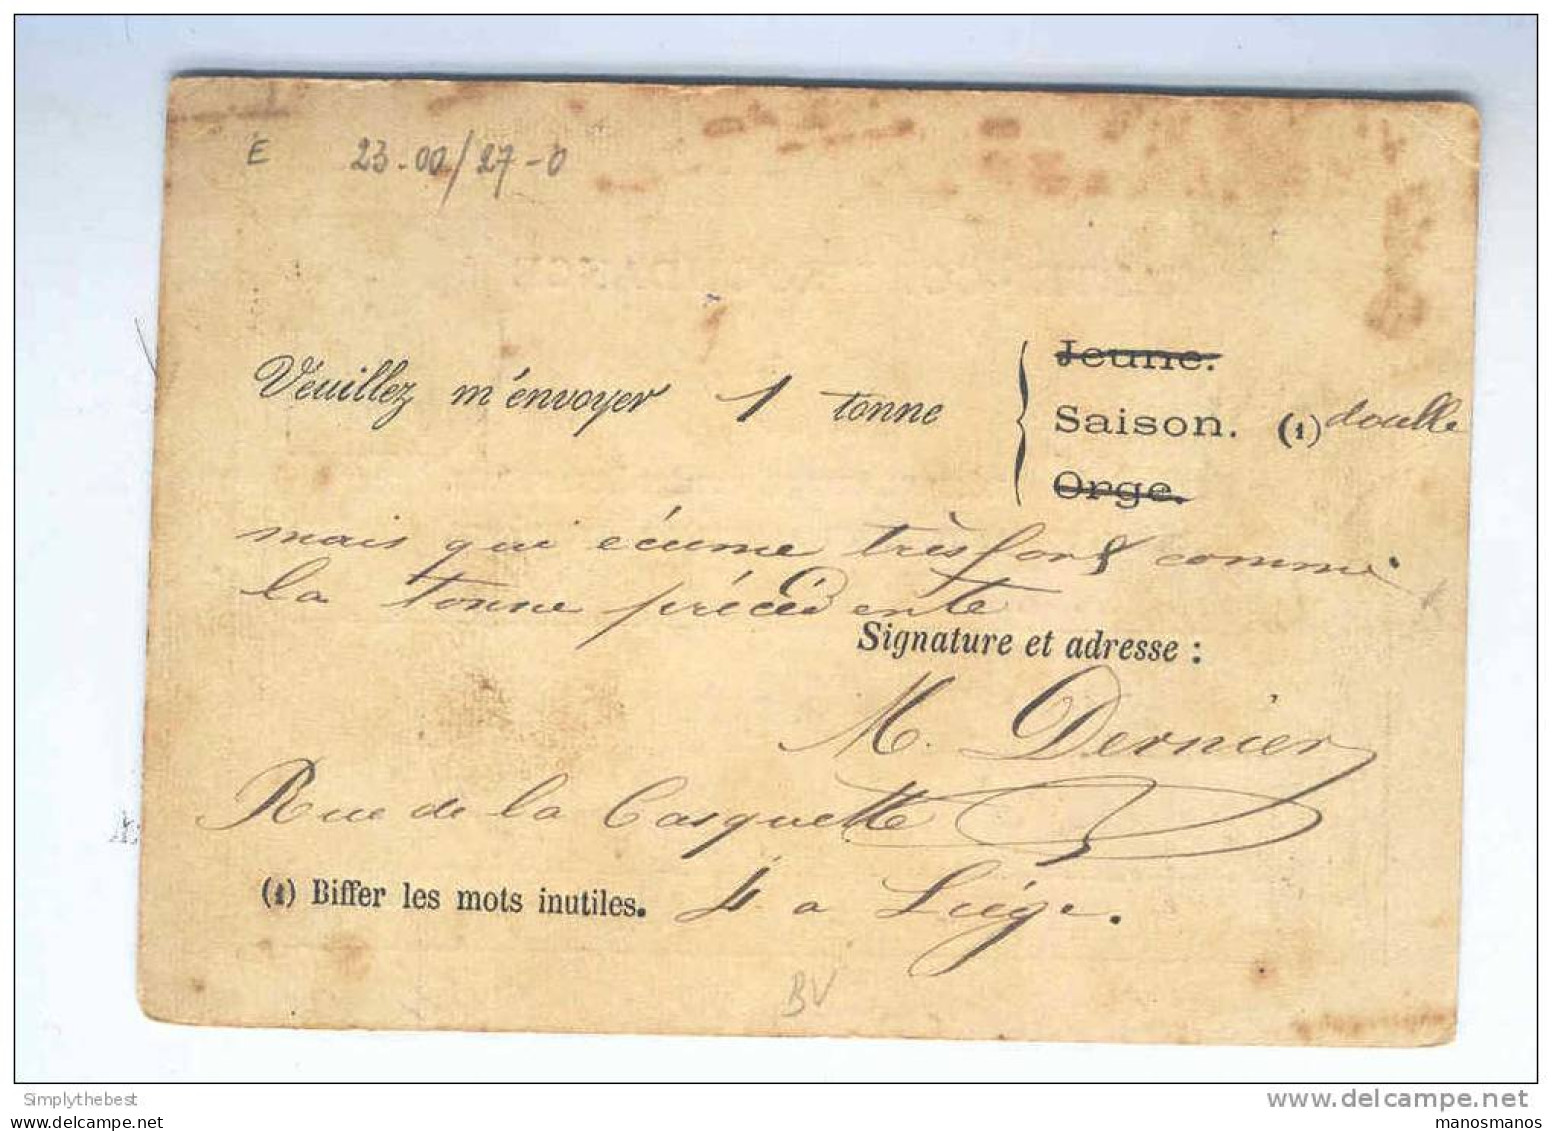 E 23-00/27-0
Jeune.
Veuillez m'envoyer 1 tonne Saison. (1) double
Orge.
mais qui écume très fort comme
la tonne précédente
Signature et adresse :
M. Dernier
Rue de la Casquette
(1) Biffer les mots inutiles. 4 a Liége.
BV
Simplythebest
www.delcampe.net
manosmanos